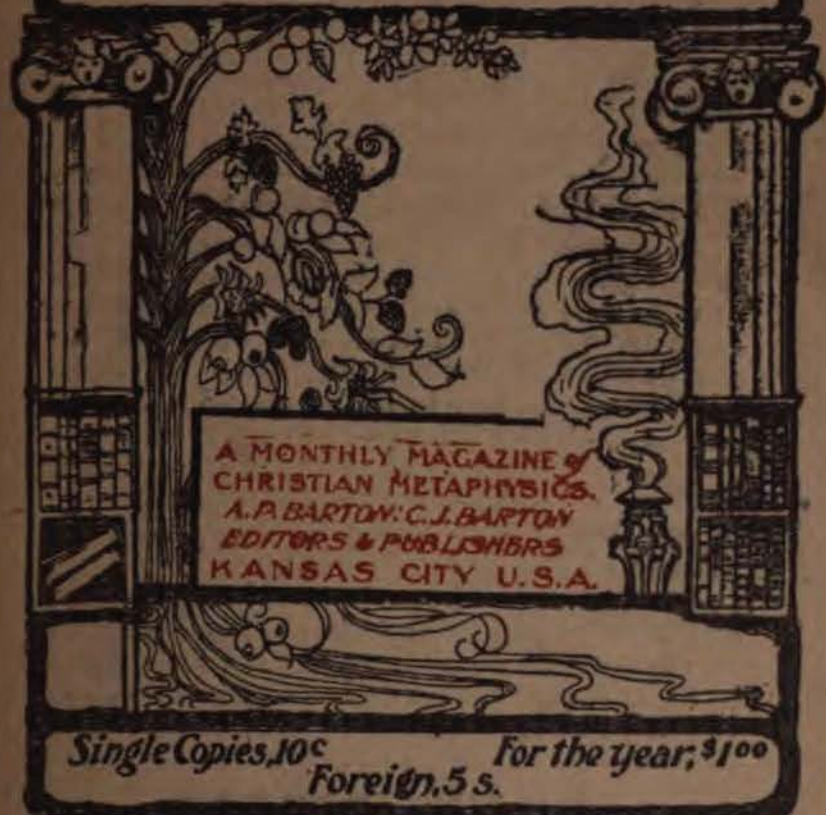 A MONTHLY MAGAZINE of
CHRISTIAN METAPHYSICS.
A.P. BARTON: C.J. BARTON
EDITORS & PUBLISHERS
KANSAS CITY U.S.A.
Single Copies, 10c For the year, $100
Foreign, 5 s.